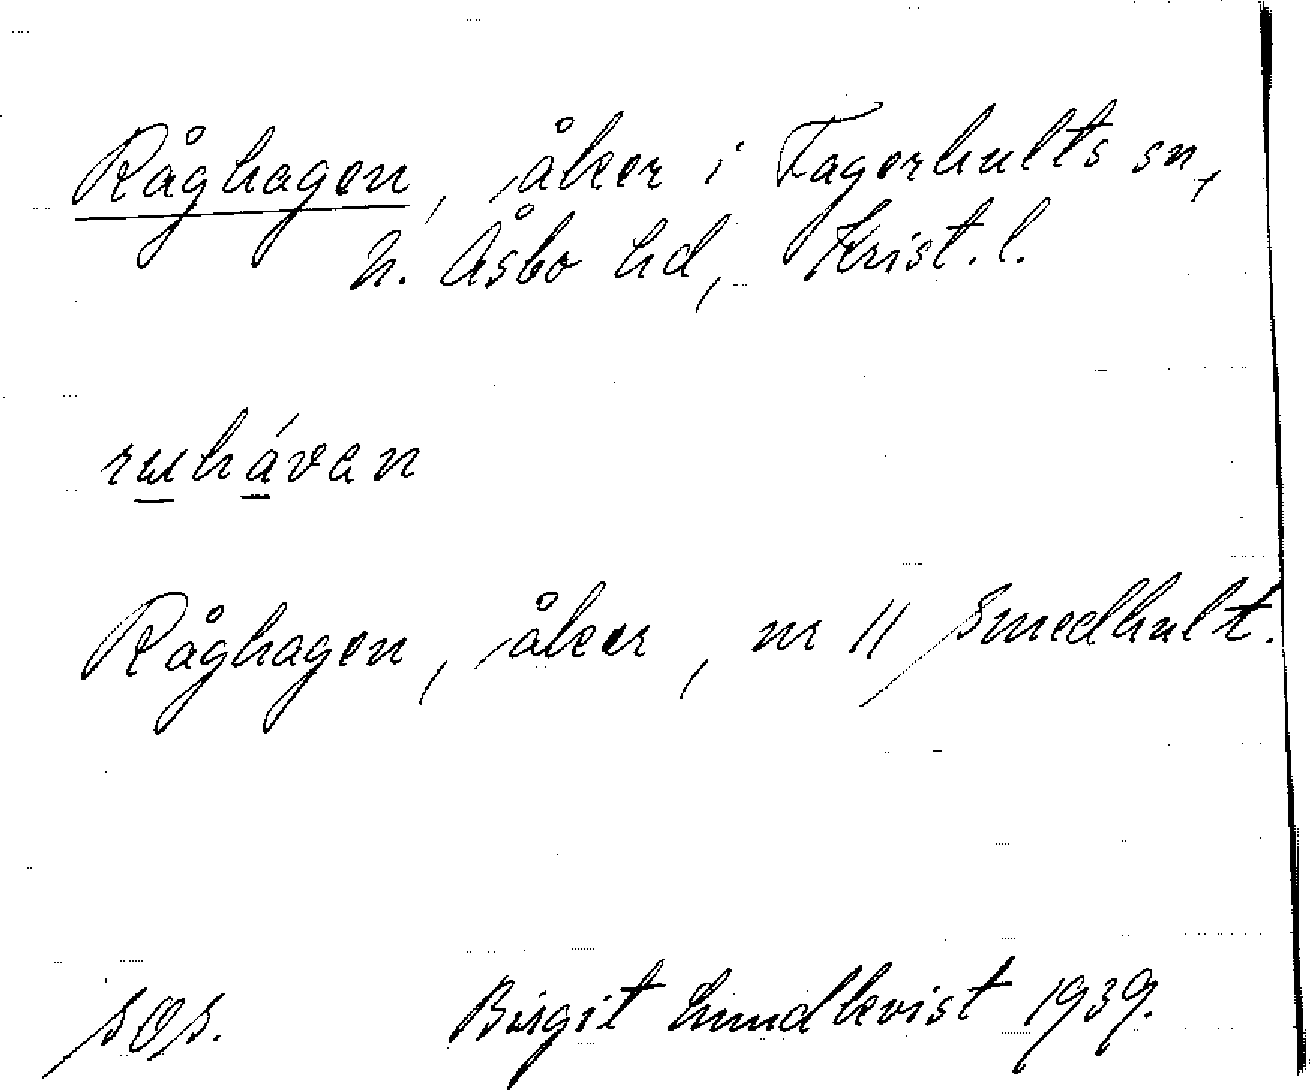 Råghagen, åker i Fagerhults sn,
N. Åsbo hd, Krist. l.
ruhávan
Råghagen, åker, nr 11 Smedhult.
SOS. Birgit Lundkvist 1939.